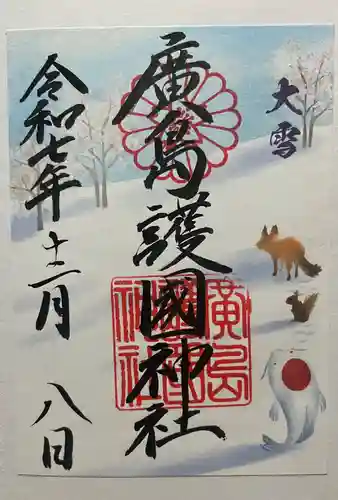 大雪
廣島護國神社
令和七年
十二月
八日
廣島
護國
神社